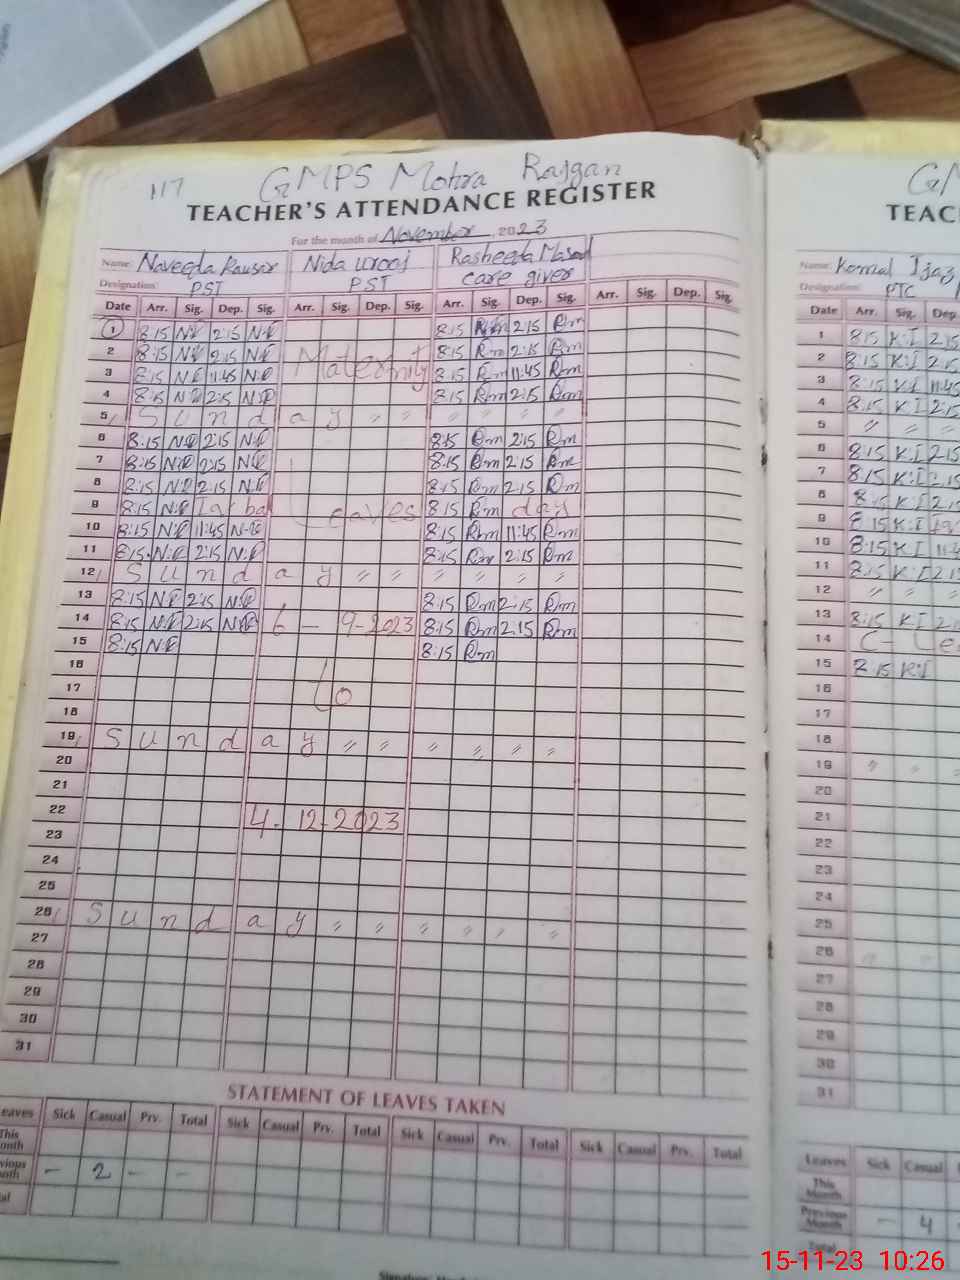 117 GMPS Mohra Rajgan
TEACHER'S ATTENDANCE REGISTER
For the month of November, 2023
Name: Naveeda Kausar Nida urooj Rasheeda Masood
Designation: PST PST care giver
Date Arr. Sig. Dep. Sig. Arr. Sig. Dep. Sig. Arr. Sig. Dep. Sig. Arr. Sig. Dep. Sig.
1 8:15 N.K 2:15 N.K 8:15 Rm 2:15 Rm
2 8:15 N.K 2:15 N.K Maternity 8:15 Rm 2:15 Rm
3 8:15 N.K 11:45 N.K 8:15 Rm 11:45 Rm
4 8:15 N.K 2:15 N.K 8:15 Rm 2:15 Rm
5 Sunday 〃 〃 〃 〃 〃 〃
6 8:15 N.K 2:15 N.K 8:15 Rm 2:15 Rm
7 8:15 N.K 2:15 N.K 8:15 Rm 2:15 Rm
8 8:15 N.K 2:15 N.K 8:15 Rm 2:15 Rm
9 8:15 N.K Iqbal Leaves 8:15 Rm day
10 8:15 N.K 11:45 N.K 8:15 Rm 11:45 Rm
11 8:15 N.K 2:15 N.K 8:15 Rm 2:15 Rm
12 Sunday 〃 〃 〃 〃 〃 〃
13 8:15 N.K 2:15 N.K 8:15 Rm 2:15 Rm
14 8:15 N.K 2:15 N.K 6 - 9-2023 8:15 Rm 2:15 Rm
15 8:15 N.K 8:15 Rm
16
17 to
18
19 Sunday 〃 〃 〃 〃 〃 〃
20
21
22 4.12-2023
23
24
25
26 Sunday 〃 〃 〃 〃 〃 〃
27
28
29
30
31
STATEMENT OF LEAVES TAKEN
eaves Sick Casual Prv. Total Sick Casual Prv. Total Sick Casual Prv. Total Sick Casual Prv. Total
This
onth
vious
onth - 2 - -
tal
GM
TEAC
Name: Komal Ijaz
Designation: PTC
Date Arr. Sig. Dep
1 8:15 K.I 2:15
2 8:15 K.I 2:15
3 8:15 K.I 11:45
4 8:15 K.I 2:15
5 〃 〃 〃
6 8:15 K.I 2:15
7 8:15 K.I 2:15
8 8:15 K.I 2:1
9 8:15 K.I
10 8:15 K.I 11:4
11 8:15 K.I 2:15
12 〃 〃 〃
13 8:15 K.I 2:1
14 C- Le
15 8:15 K.I
16
17
18
19 〃 〃 〃
20
21
22
23
24
25
26 〃 〃
27
28
29
30
31
Leaves Sick Casual
This
Month
Previous
Month - 4
Total
15-11-23 10:26